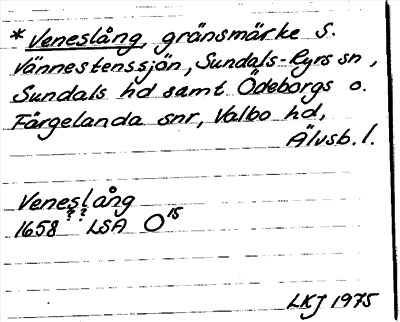 * Veneslång, gränsmärke S.
Vännestenssjön, Sundals-Ryrs sn,
Sundals hd samt Ödeborgs o.
Färgelanda snr, Valbo hd,
Älvsb. l.
Veneslång
??
1658 LSA O15
LKJ 1975